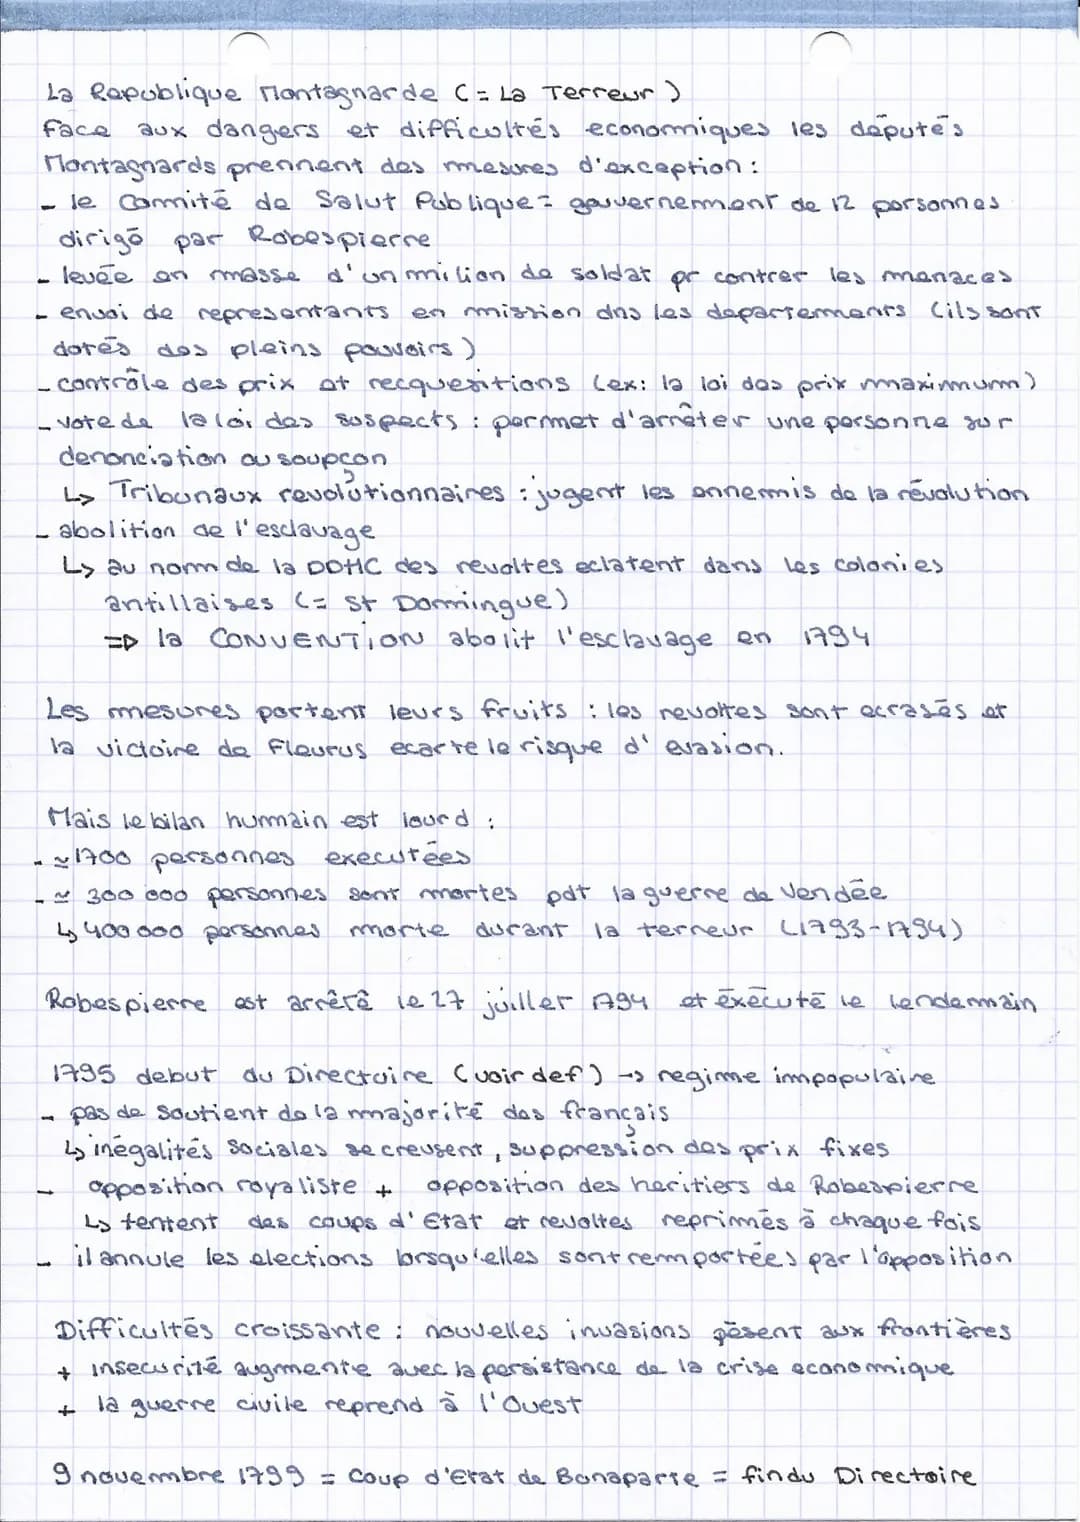 La Republique Montagnarde (= La Terreur)
Face aux dangers et difficultés economiques les députés
Montagnards prennent des mesures d'exception :
- le Comité de Salut Publique = gouvernement de 12 personnes
dirigé par Robespierre
- levée en masse d'un milion de soldat pr contrer les menaces
- envoi de representants en mission dns les departements (ils sont
dotés des pleins pouvoirs)
- contrôle des prix et recquesitions (ex: la loi des prix maximum)
- vote de la loi des suspects : permet d'arrêter une personne sur
denonciation ou soupçon
↳ Tribunaux revolutionnaires : jugent les ennemis de la révolution
- abolition de l'esclavage
↳ au nom de la DDHC des revoltes eclatent dans les colonies
antillaises (= St Domingue)
=> la CONVENTION abolit l'esclavage en 1794
Les mesures portent leurs fruits : les revoltes sont ecrasés et
la victoire de Fleurus ecarte le risque d'evasion.
Mais le bilan humain est lourd :
- ≃1700 personnes executées
- ≃ 300 000 personnes sont mortes pdt la guerre de Vendée
↳ 400 000 personnes morte durant la terreur (1793-1794)
Robespierre est arrêté le 27 juillet 1794 et éxécuté le lendemain
1795 debut du Directoire (voir def) → regime impopulaire
- pas de soutient de la majorité des français
↳ inégalités sociales se creusent, suppression des prix fixes
- opposition royaliste + opposition des heritiers de Robespierre
↳ tentent des coups d'Etat et revoltes reprimés à chaque fois
- il annule les elections lorsqu'elles sont remportées par l'opposition
Difficultés croissante : nouvelles invasions pèsent aux frontières
+ insecurité augmente avec la persistance de la crise economique
+ la guerre civile reprend à l'Ouest
9 novembre 1799 = Coup d'Etat de Bonaparte = fin du Directoire